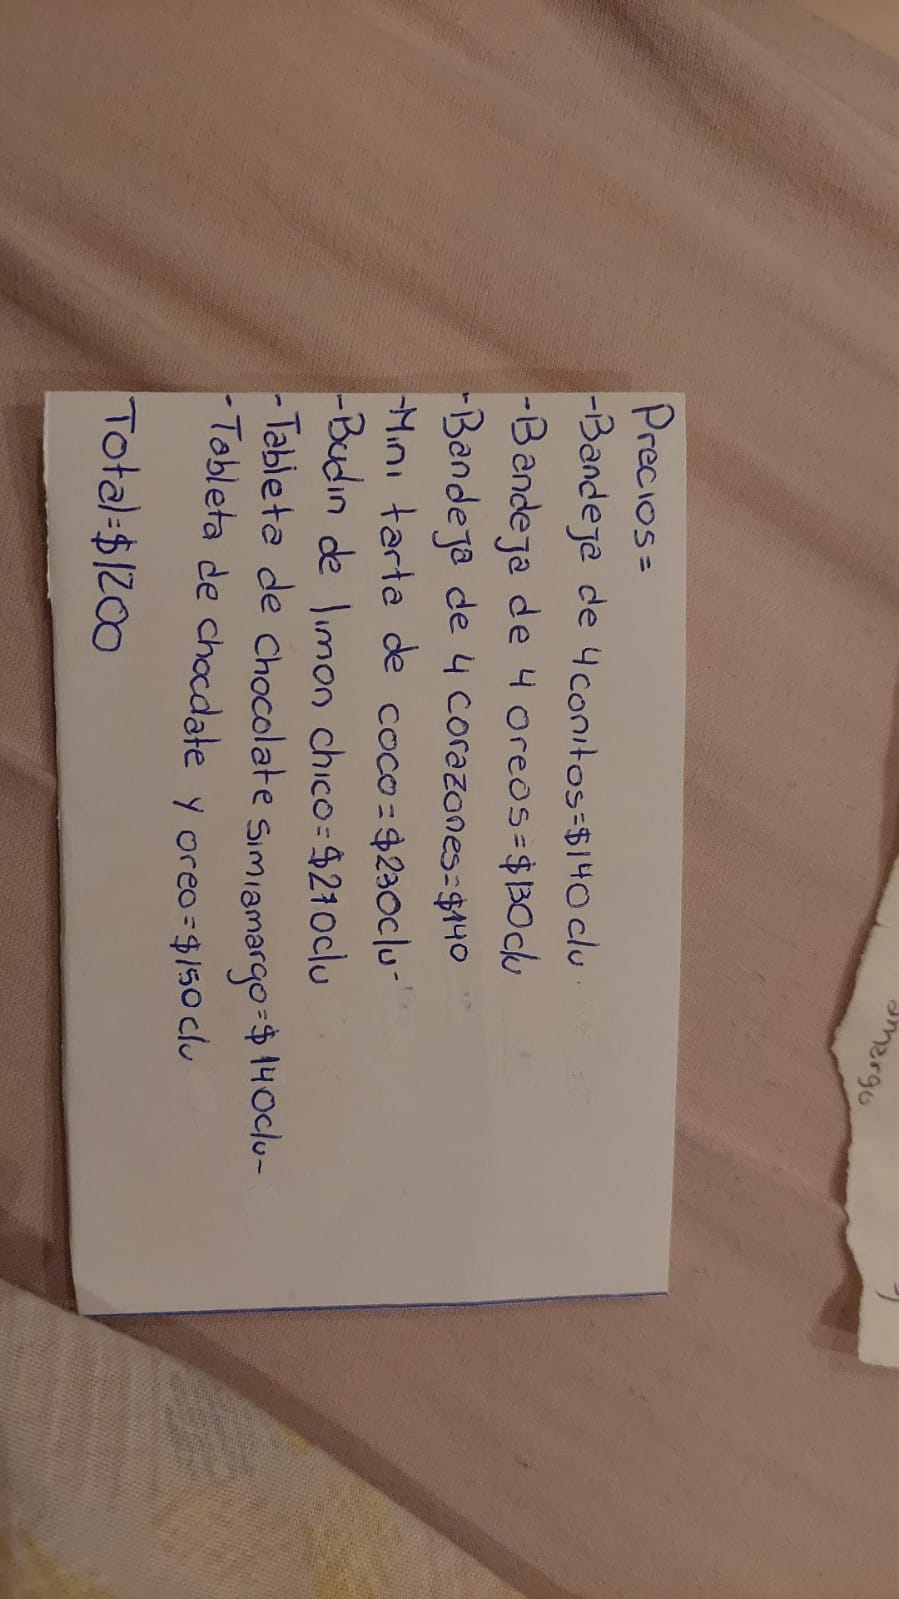 amargo
Precios=
-Bandeja de 4 conitos=$140 c/u
-Bandeja de 4 oreos=$130 c/u
-Bandeja de 4 corazones=$140
-Mini tarta de coco=$230 c/u-
-Budin de limon chico=$210 c/u
-Tableta de chocolate simiamargo=$140 c/u-
-Tableta de chocolate y oreo=$150 c/u
Total=$1200